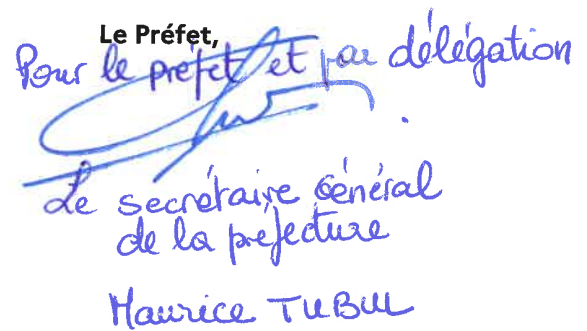 Le Préfet,
Pour le préfet et par délégation
Le secrétaire Général
de la préfecture
Maurice TUBUL